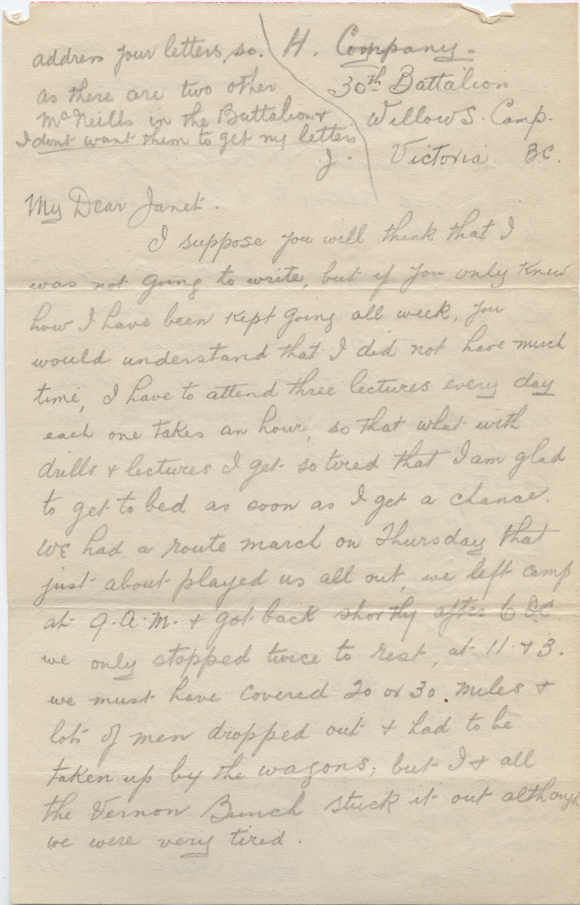 address your letters so.
as there are two other
McNeills in the Battalion &
I dont want them to get my letters
J.
H. Company.
30th Battalion
Willows. Camp.
Victoria BC.
My Dear Janet.
I suppose you will think that I
was not going to write, but if you only knew
how I have been kept going all week, you
would understand that I did not have much
time, I have to attend three lectures every day
each one takes an hour, so that what with
drills & lectures I get so tired that I am glad
to get to bed as soon as I get a chance.
We had a route march on Thursday that
just about played us all out, we left camp
at 9.A.M. & got back shortly after 6 O.C.
we only stopped twice to rest, at 11 & 3.
we must have covered 20 or 30 miles &
lots of men dropped out & had to be
taken up by the wagons, but I & all
the Vernon Bunch stuck it out although
we were very tired.